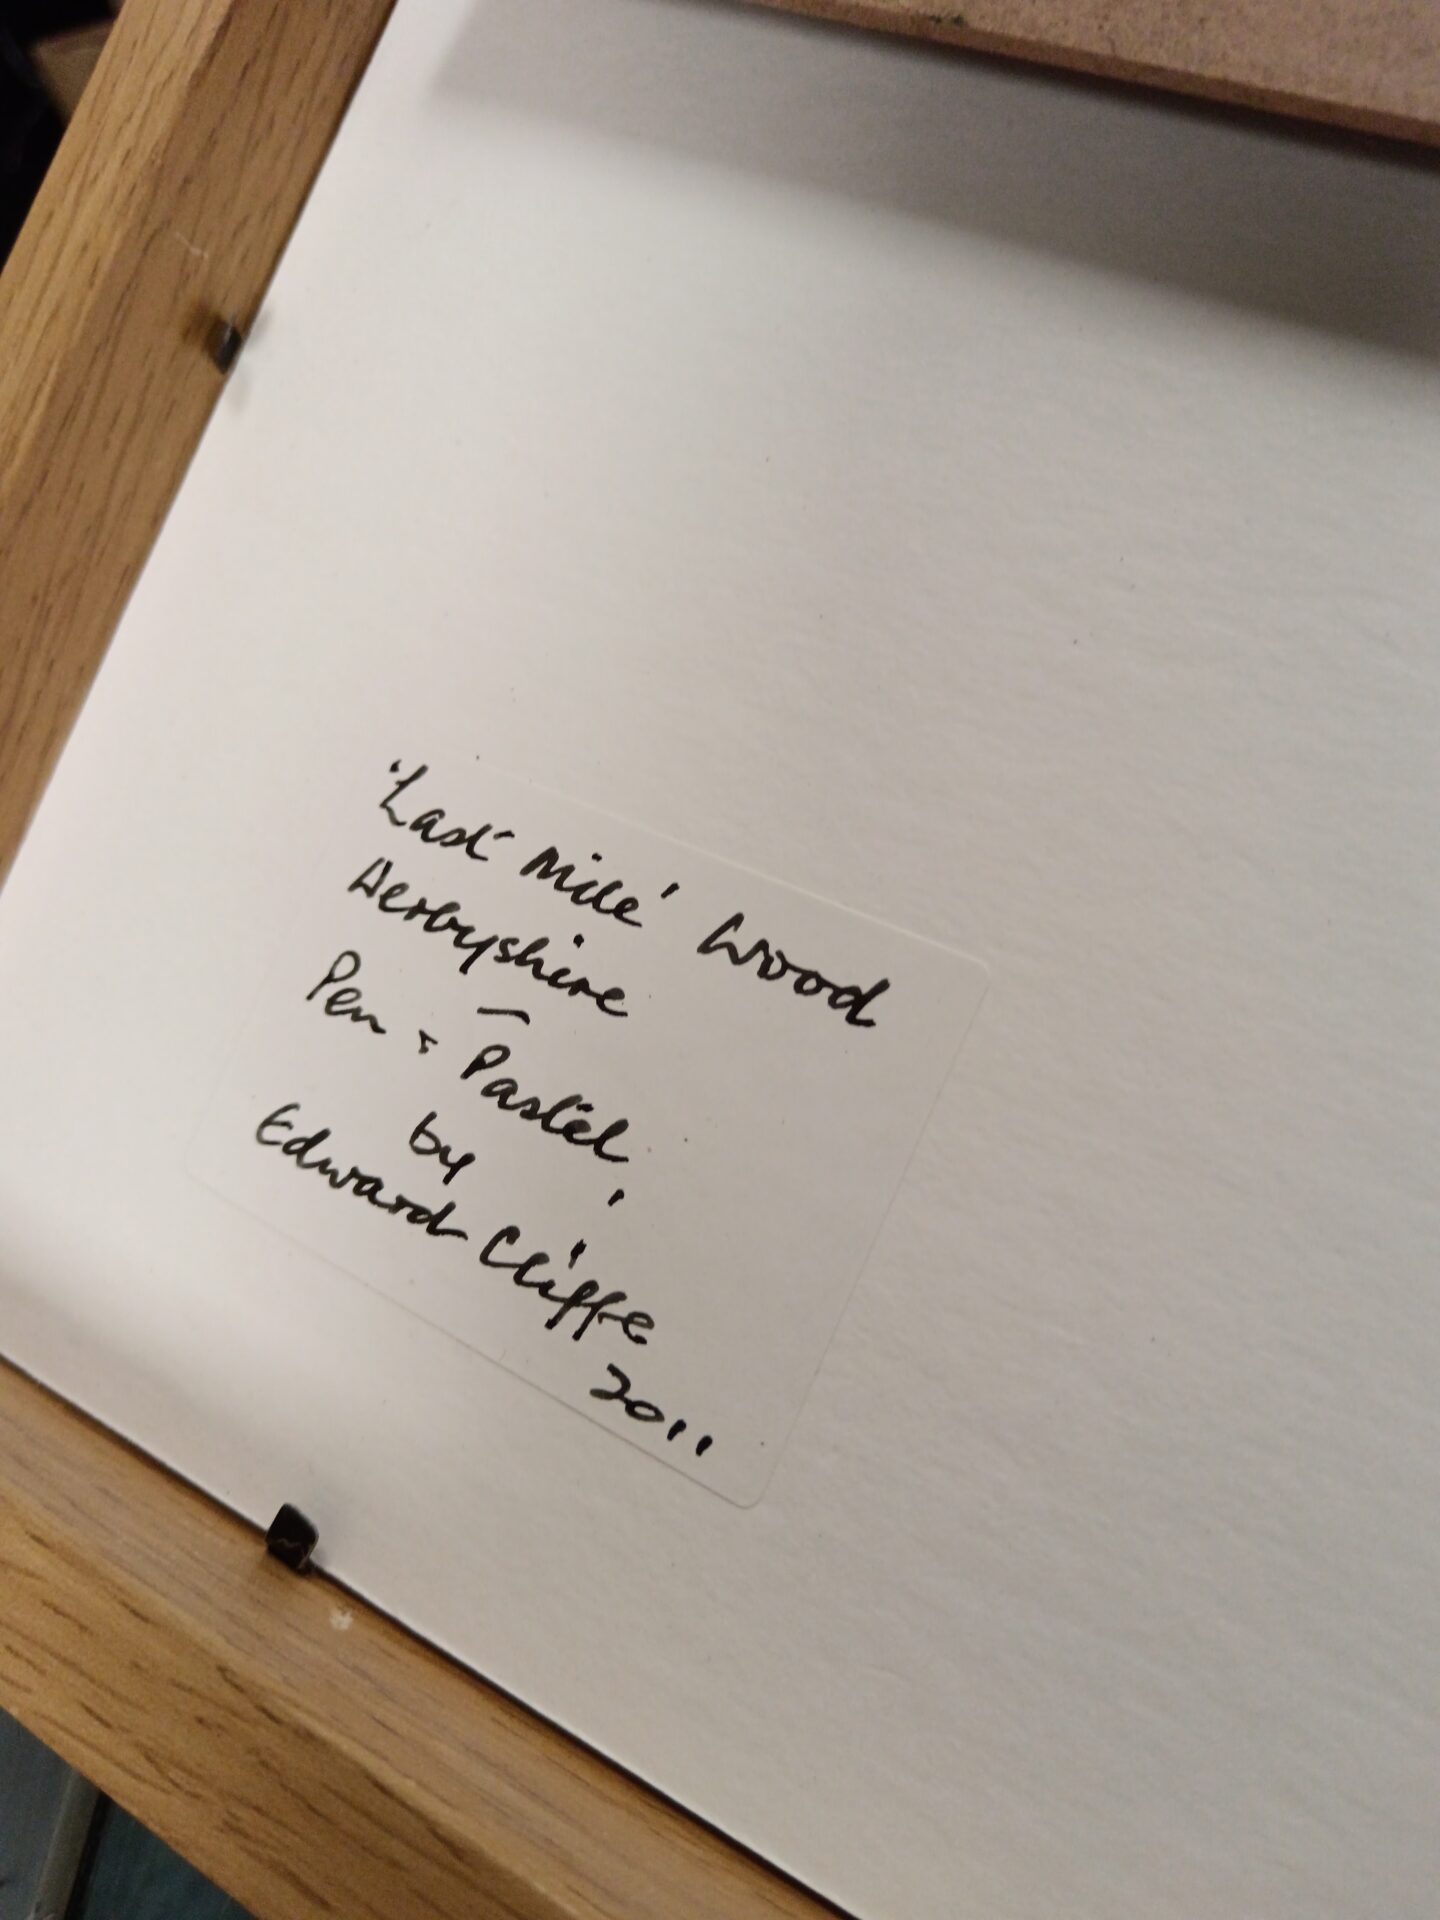 'Last Mile' Wood
Derbyshire
–
Pen & Pastel,
by
Edward Cliffe
2011